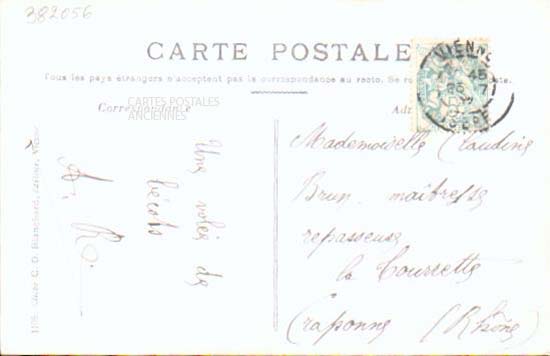 382056
CARTE POSTALE
Tous les pays étrangers n'acceptent pas la correspondance au recto. Se
Correspondance
CARTES POSTALES
ANCIENNES
VIENNE
ISERE
Une volée de
bécots
A. R.
Mademoiselle Claudine
Brun maîtresse
repasseuse
la Tourrette
Craponne (Rhône)
C. D. Blanchard, éditeur, Vienne